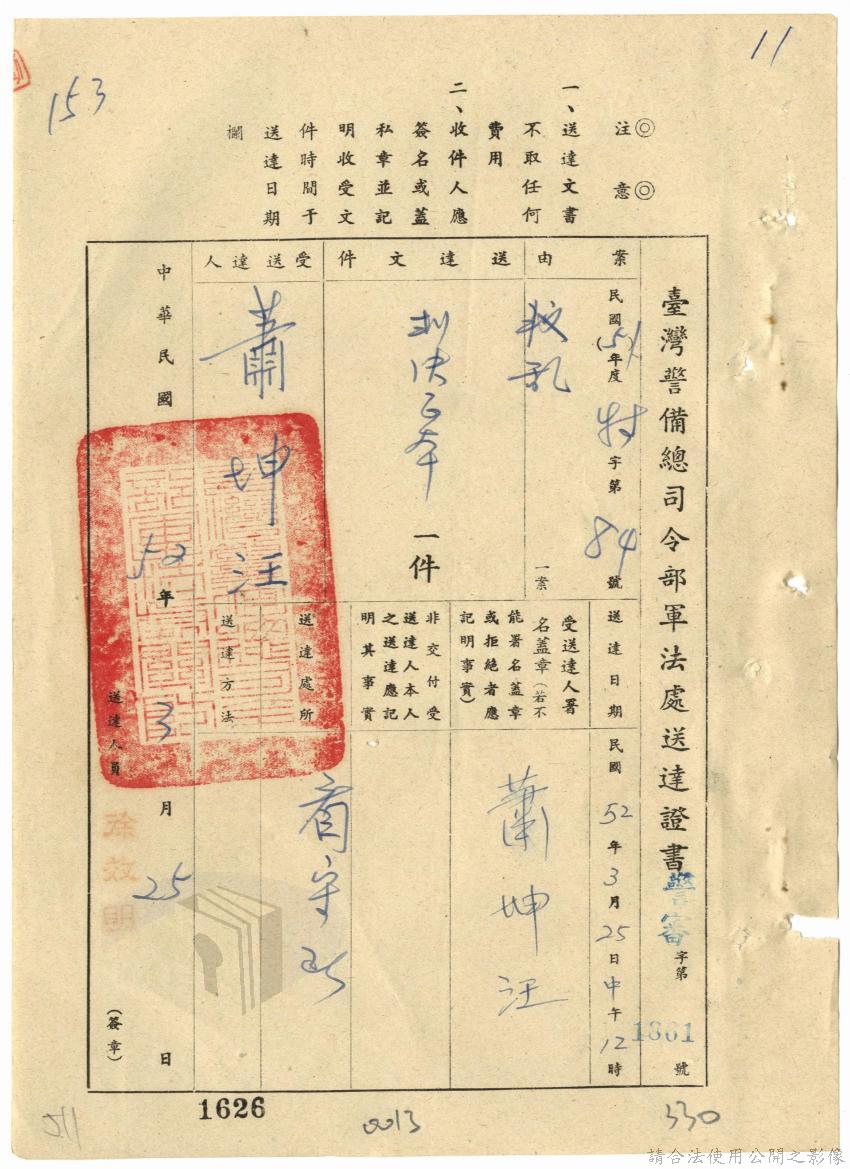 11
153
◎注意◎
一、送達文書
不取任何
費用
二、收件人應
簽名或蓋
私章並記
明收受文
件時間于
送達日期
欄
臺灣警備總司令部軍法處送達證書警審字第1361號
案由
民國(51)年度特字第84號
叛乱
一案
送達文件
判決正本
一件
受送達人
蕭坤汪
送達日期
民國52年3月25日中午12時
受送達人署
名蓋章(若不
能署名蓋章
或拒絕者應
記明事實)
蕭坤汪
非交付受
送達人本人
之送達應記
明其事實
送達處所
看守所
送達方法
中華民國52年3月25日
送達人員
(簽章)
1626
0013
330
511
請合法使用公開之影像